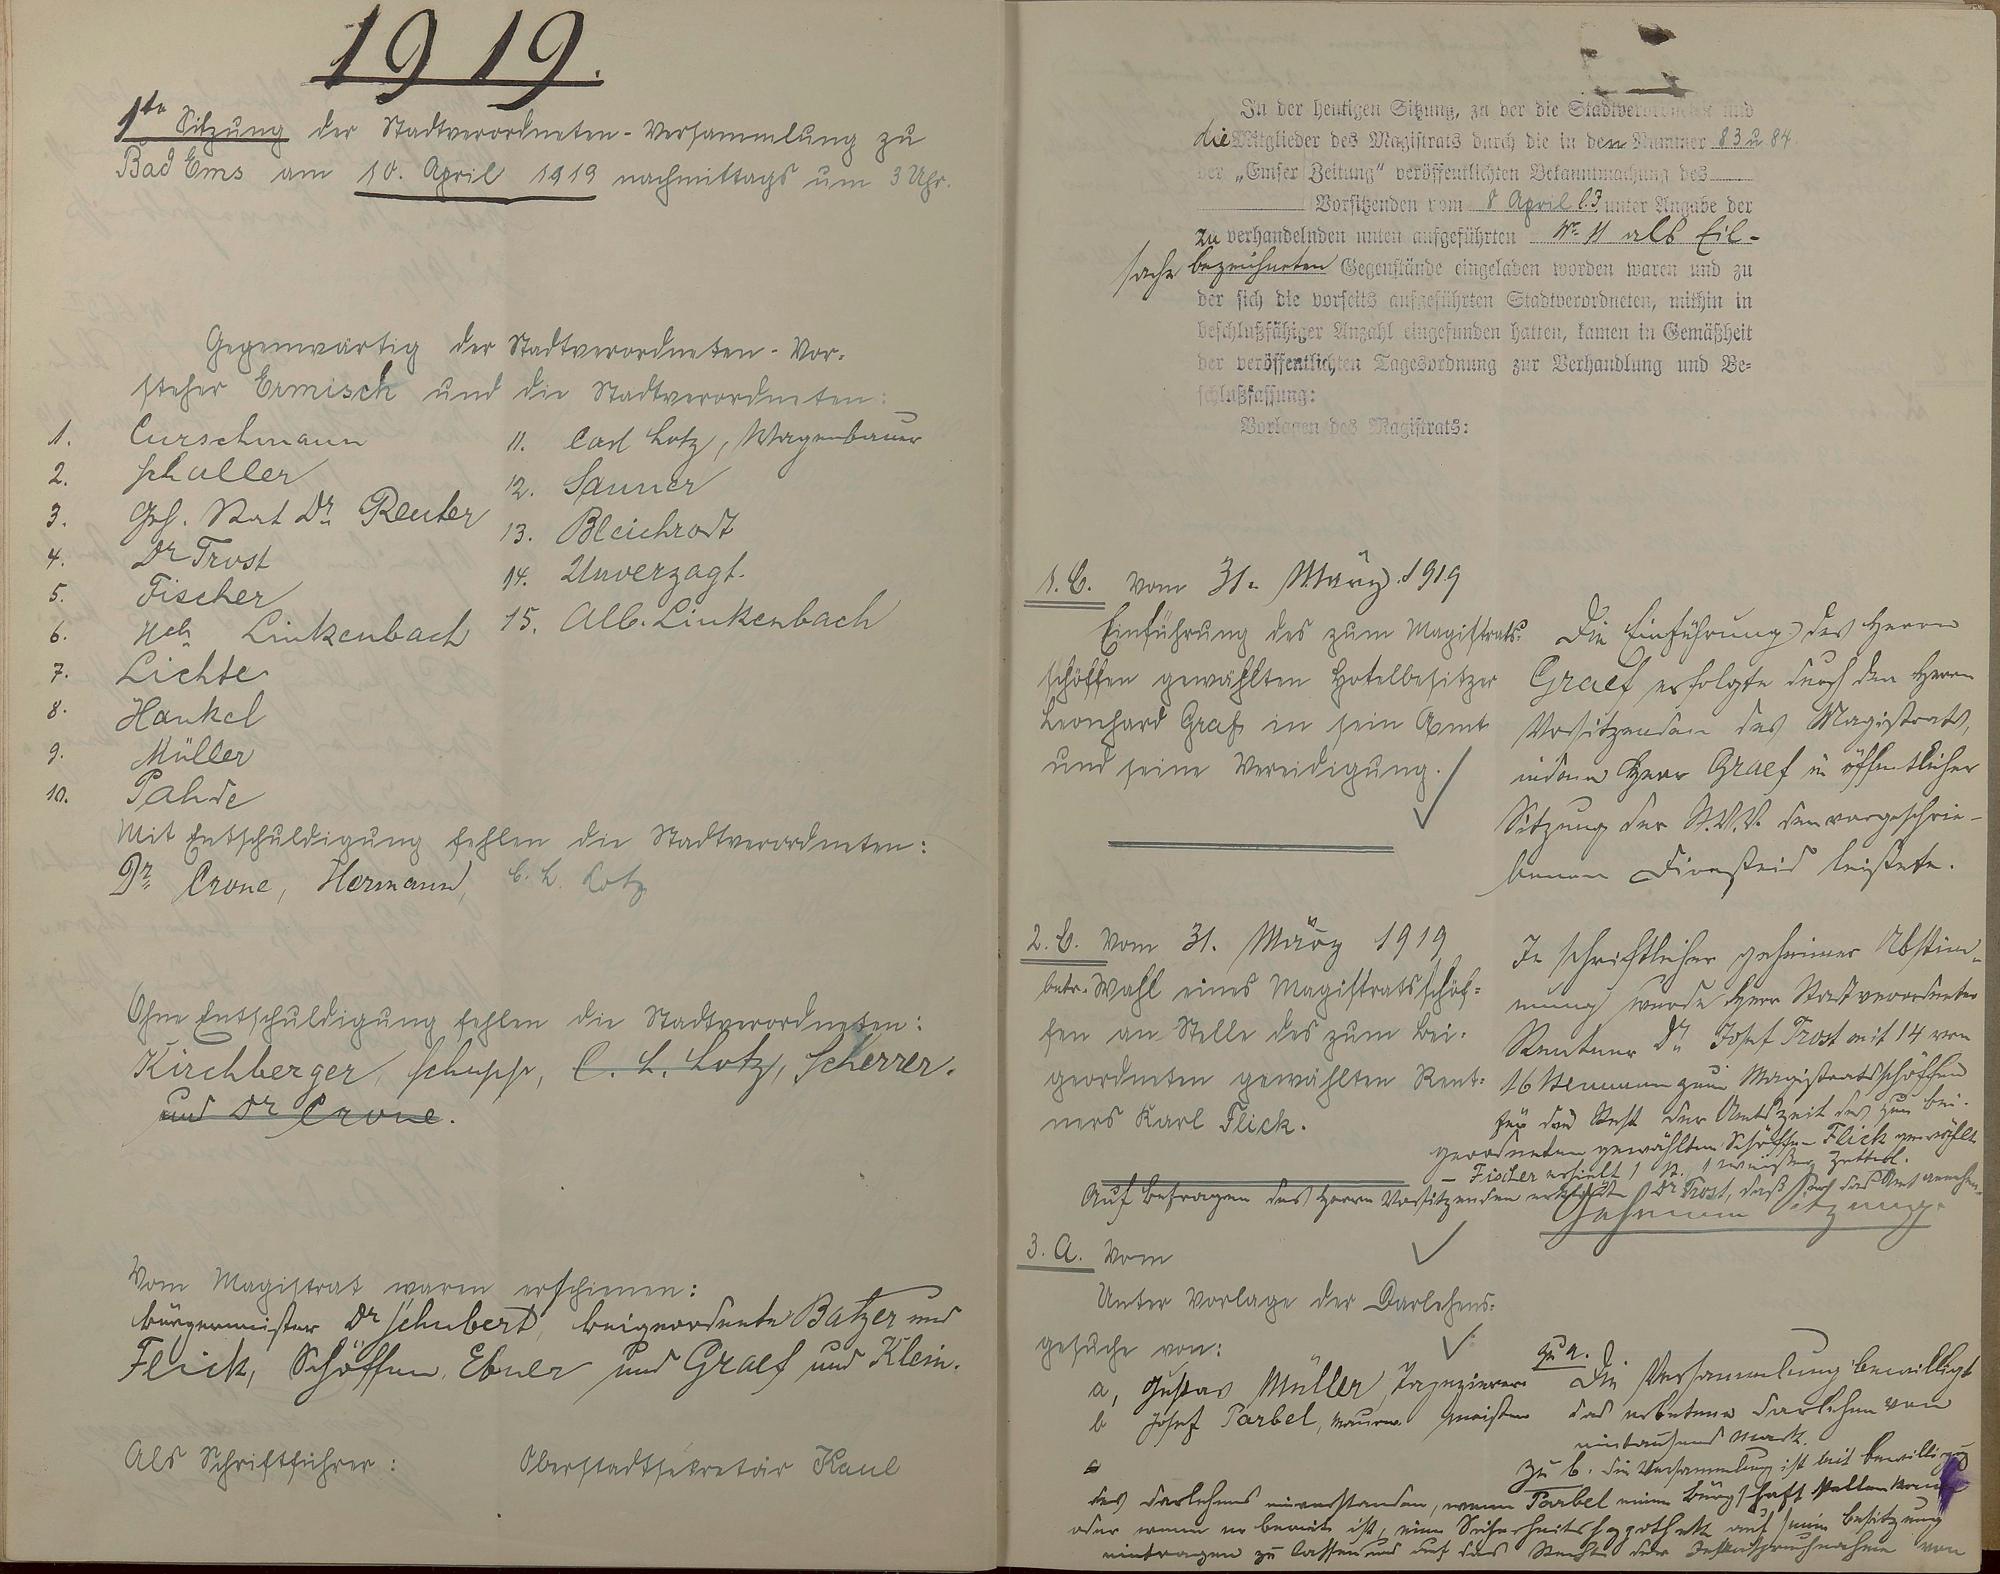 1919.
1te Sitzung der Stadtverordneten-Versammlung zu
Bad Ems am 10. April 1919 nachmittags um 3 Uhr.
Gegenwärtig der Stadtverordneten-Vor-
steher Ermisch und die Stadtverordneten:
1. Curschmann
2. Schaller
3. Geh. Rat Dr. Reuter
4. Dr Trost
5. Fischer
6. Hch. Linkenbach
7. Lichte
8. Hankel
9. Müller
10. Pahde
11. Carl Lotz, Wagenbauer
12. Sauner
13. Bleichrodt
14. Unverzagt.
15. Alb. Linkenbach
Mit Entschuldigung fehlen die Stadtverordneten:
Dr. Crone, Hermann, C. L. Lotz
Ohne Entschuldigung fehlen die Stadtverordneten:
Kirchberger, Schupp, C. L. Lotz, Scherrer.
und Dr Crone.
Vom Magistrat waren erschienen:
Bürgermeister Dr Schubert, Beigeordnete Balzer und
Flick, Schöffen Ebner und Graef und Klein.
Als Schriftführer: Oberstadtsekretär Kaul
In der heutigen Sitzung, zu der die Stadtverordneten und
die Mitglieder des Magistrats durch die in den Nummer 83 u 84
der „Emser Zeitung“ veröffentlichten Bekanntmachung des
Vorsitzenden vom 8 April l.J. unter Angabe der
zu verhandelnden unten aufgeführten No 11 als Eil-
sache bezeichneten Gegenstände eingeladen worden waren und zu
der sich die vorseits aufgeführten Stadtverordneten, mithin in
beschlußfähiger Anzahl eingefunden hatten, kamen in Gemäßheit
der veröffentlichten Tagesordnung zur Verhandlung und Be-
schlußfassung:
Vorlagen des Magistrats:
1. C. vom 31. März 1919
Einführung des zum Magistrats-
schöffen gewählten Hotelbesitzer
Leonhard Graf in sein Amt
und seine Vereidigung.
Die Einführung des Herrn
Graef erfolgte durch den Herrn
Vorsitzenden des Magistrats,
indem Herr Graef in öffentlicher
Sitzung der St.V.V. den vorgeschrie-
benen Diensteid leistete.
2. C. vom 31. März 1919
betr. Wahl eines Magistratsschöf-
fen an Stelle des zum Bei-
geordneten gewählten Rent-
ners Karl Flick.
In schriftlicher geheimer Abstim-
mung wurde Herr Stadtverordneter
Rentner Dr. Josef Trost mit 14 von
16 Stimmen zum Magistratsschöffen
für den Rest der Amtszeit des zum Bei-
geordneten gewählten Schöffen Flick gewählt
– Fischer erhielt 1 St. 1 weißer Zettel.
Auf Befragen des Herrn Vorsitzenden erklärte Dr Trost, daß er das Amt annehme.
Geheime Sitzung.
3. A. vom
Unter Vorlage der Darlehens-
gesuche von:
a, Gustav Müller, Tapezierer
b Josef Parbel, Maurermeister
zu a. Die Versammlung bewilligt
das erbetene Darlehen von
eintausend Mark.
zu b. Die Versammlung ist mit Bewilligung
des Darlehens einverstanden, wenn Parbel einen Bürgschaft stellen kann
oder wenn er bereit ist, eine Sicherheitshypothek auf seine Besitzung
eintragen zu lassen und auf das Recht der Inanspruchnahme von